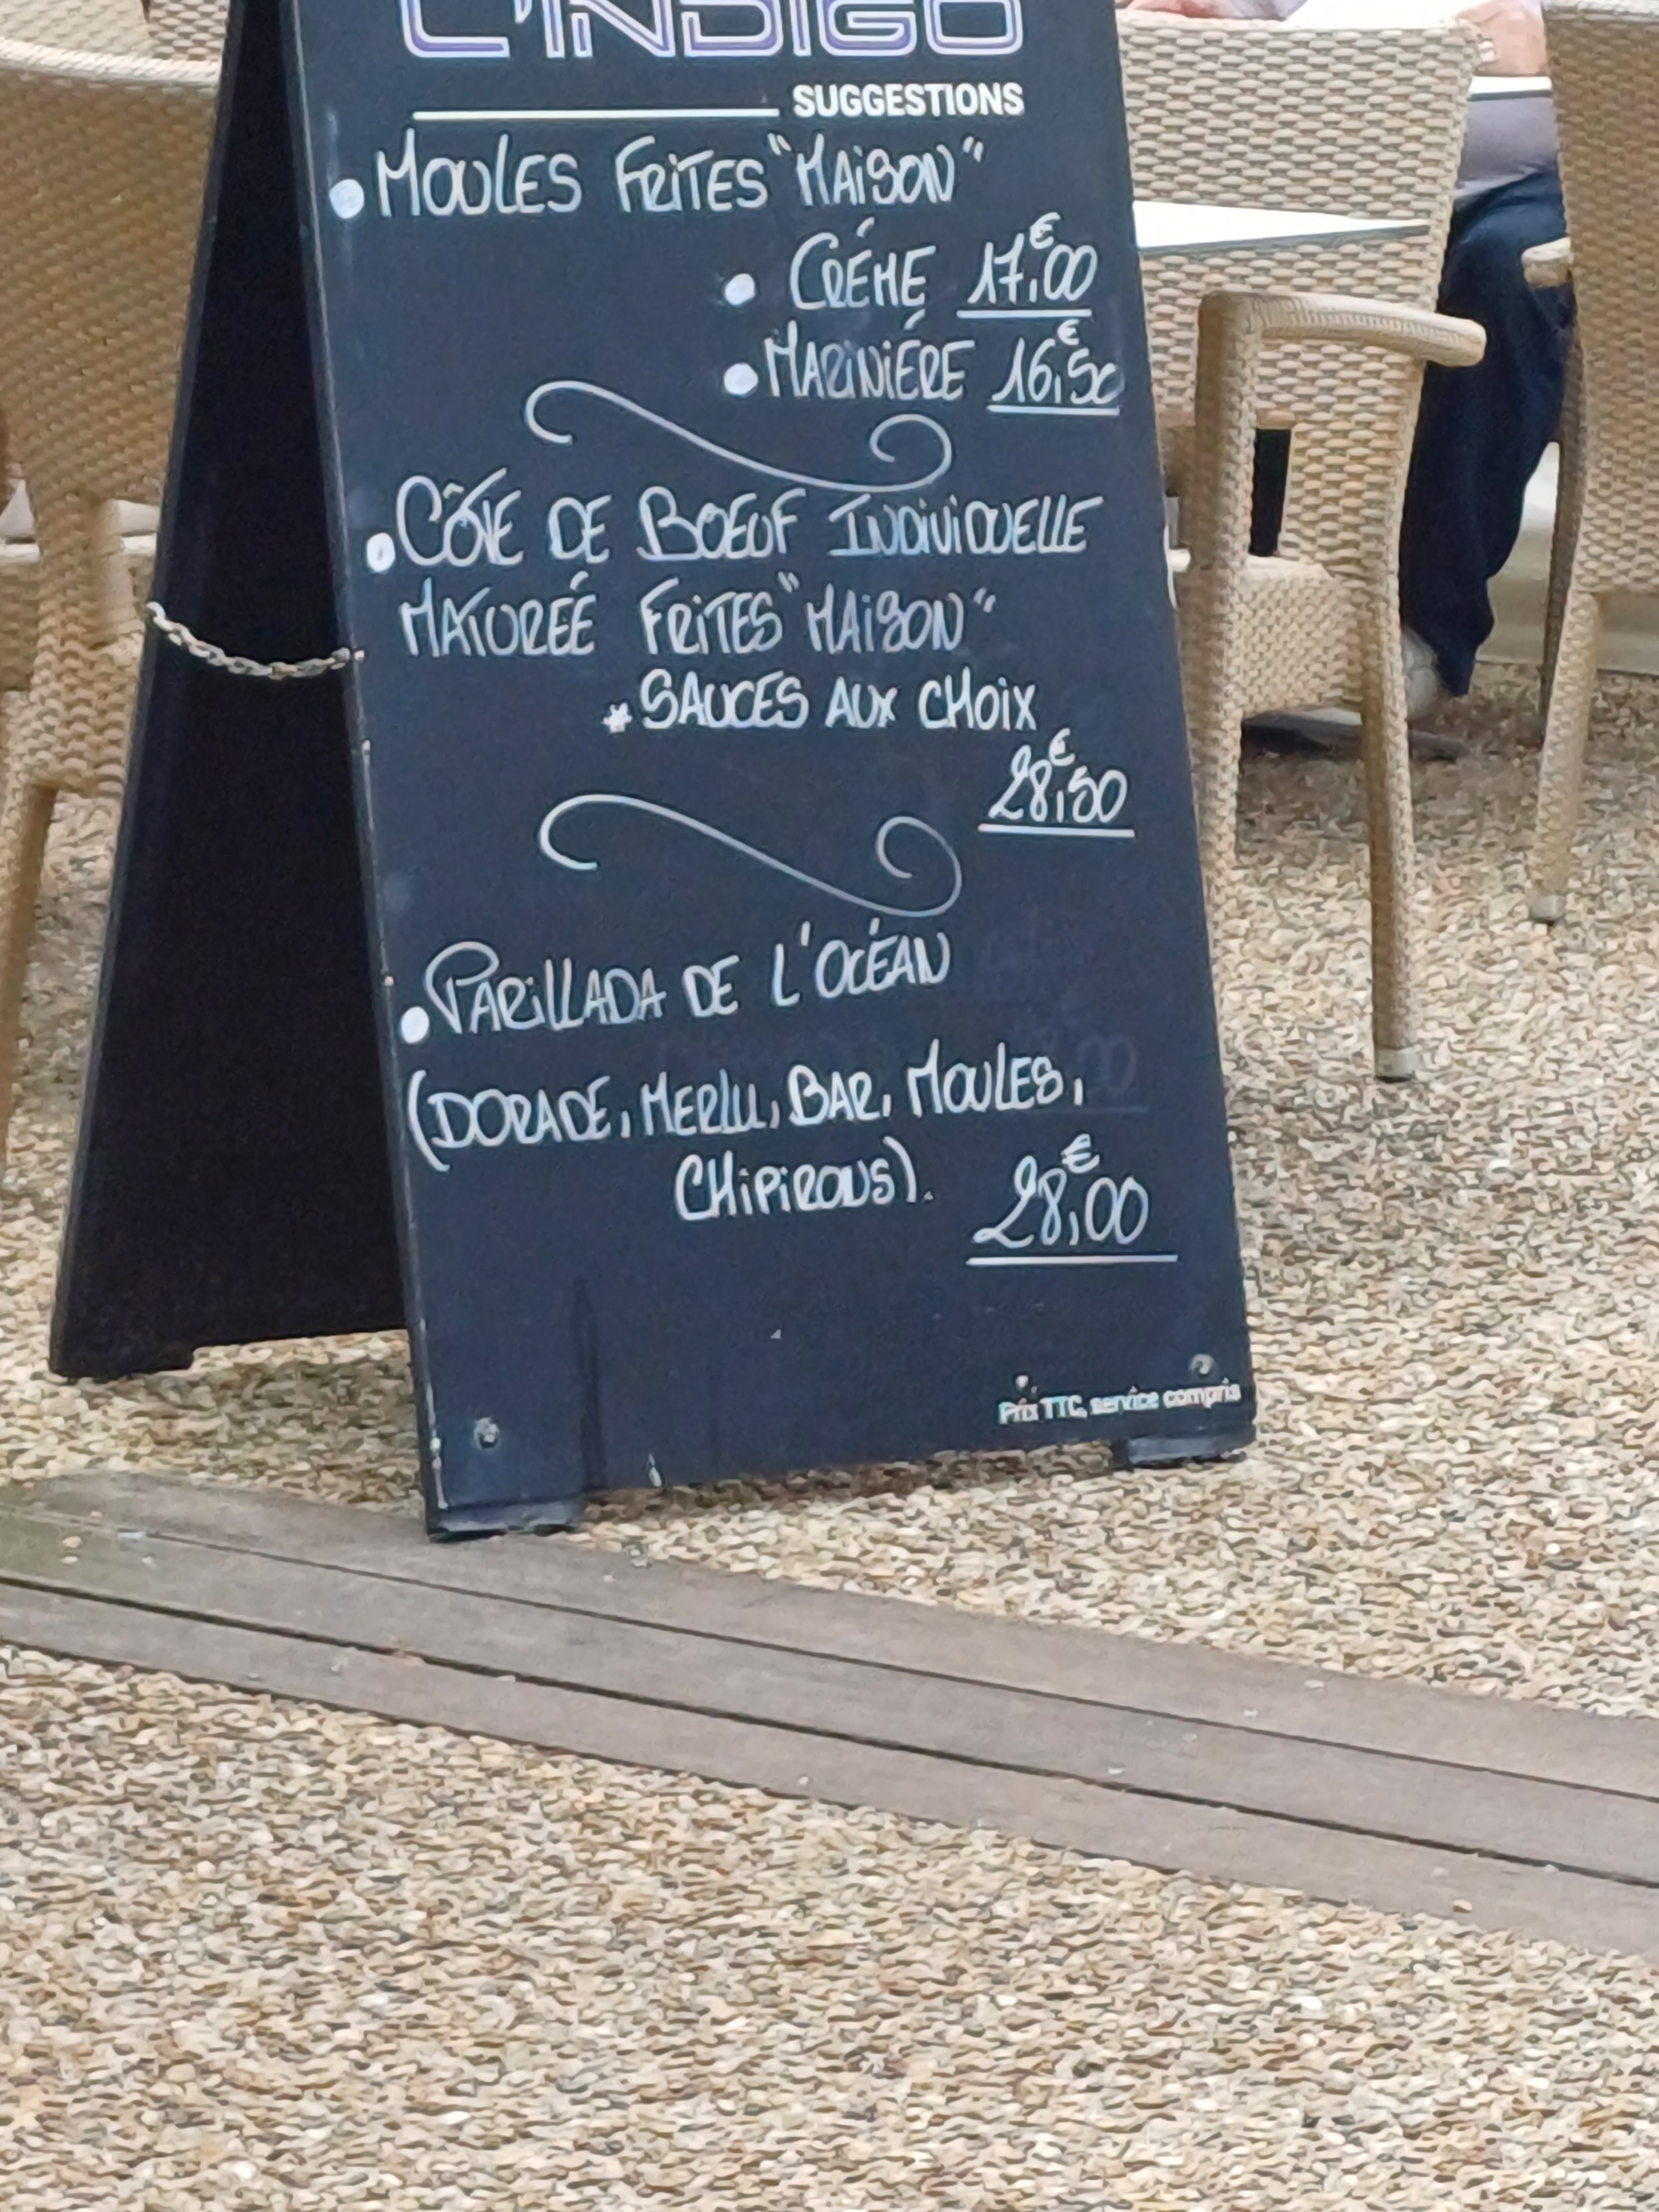 L'INDIGO
SUGGESTIONS
• MOULES FRITES "MAISON"
• CRÉME 17,00€
• MARINIÉRE 16,50€
• CÔTE DE BOEUF INDIVIDUELLE
MATURÉE FRITES "MAISON"
* SAUCES AUX CHOIX
28,50€
• PARILLADA DE L'OCÉAN
(DORADE, MERLU, BAR, MOULES,
CHIPIRONS).
28,00€
Prix TTC, service compris